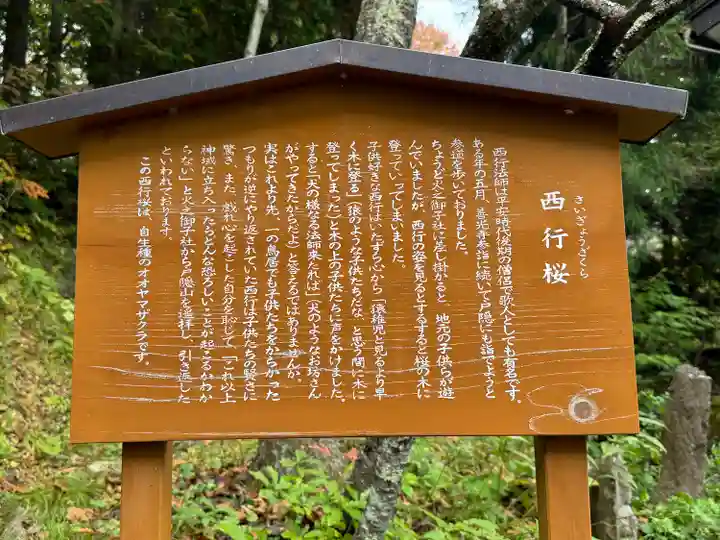 さいぎょうざくら
西行桜
西行法師は平安時代後期の僧侶で歌人としても有名です。
ある年の五月、善光寺参詣に続いて戸隠にも詣でようと
参道を歩いておりました。
ちょうど火之御子社に差し掛かると、地元の子供らが遊
んでいましたが、西行の姿を見るとするすると桜の木に
登っていってしまいました。
子供好きな西行はいたずら心から「猿稚児と見るより早
く木に登る」（猿のような子供たちだな、と思う間に木に
登ってしまった）と木の上の子供たちに声をかけました。
すると「犬の様なる法師来たれば」（犬のようなお坊さん
がやってきたからだよ）と答えるではありませんか。
実はこれより先、一の鳥居でも子供たちをからかった
つもりが逆にやり返されていた西行は子供たちの賢さに
驚き、また、戯れ心を起こした自分を恥じて「これ以上
神域に立ち入ったらどんな恐ろしいことが起こるかわか
らない」と火之御子社から戸隠山を遥拝し、引き返した
といわれております。
この西行桜は、自生種のオオヤマザクラです。